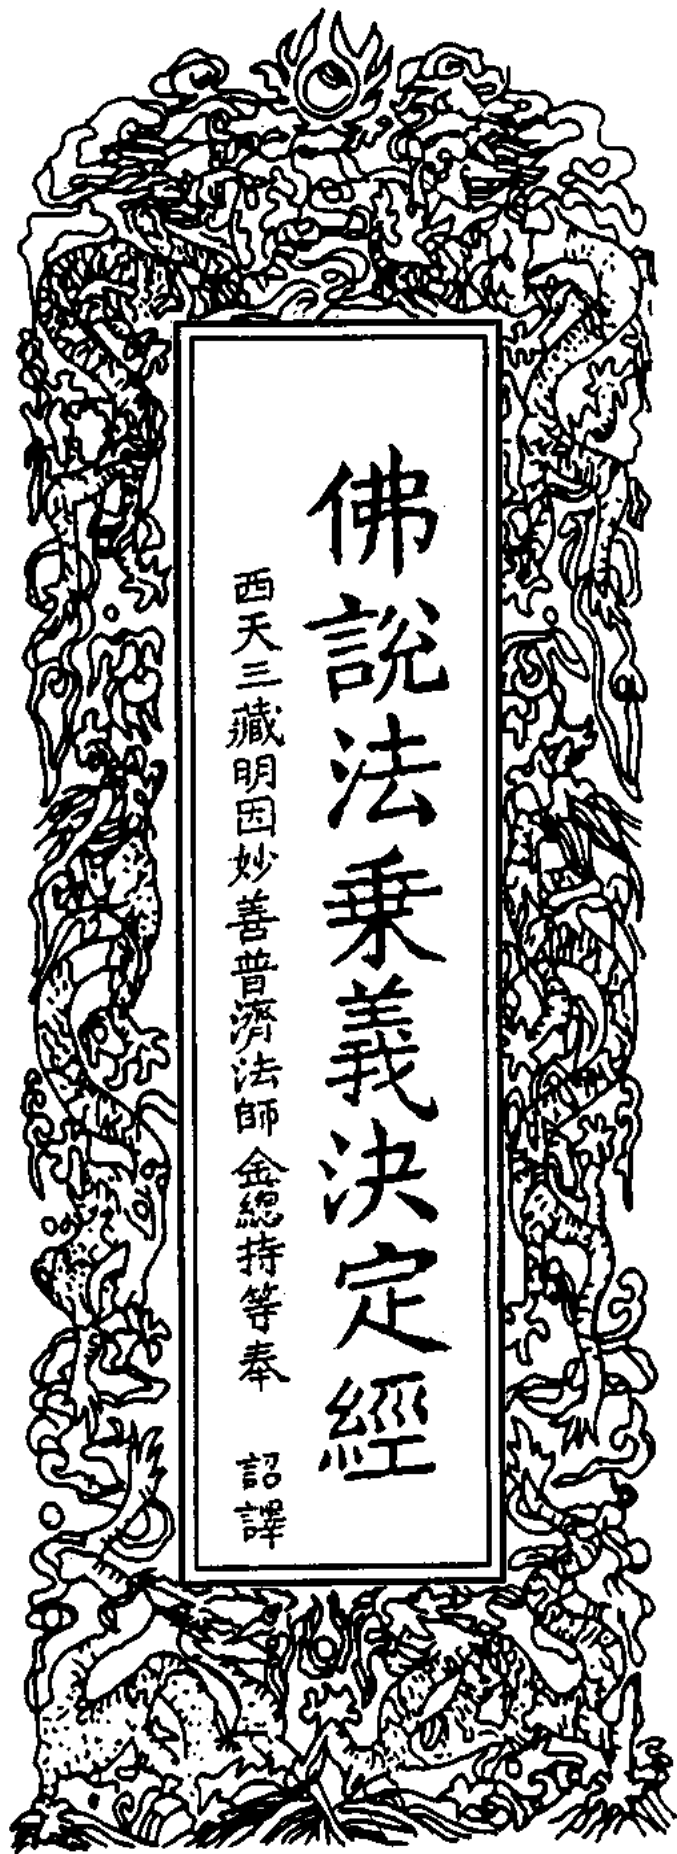 佛說法乗義決定經
西天三藏明因妙善普濟法師金緫持等奉 詔譯